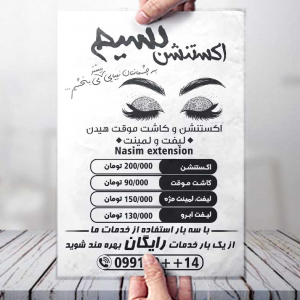 اکستنشن نسیم
به چشمان زیبایی می بخشیم...
اکستنشن و کاشت موقت هیدن
لیفت و لمینت
Nasim extension
اکستنشن 200/000 تومان
کاشت موقت 90/000 تومان
لیفت، لمینت مژه 150/000 تومان
لیفت ابرو 130/000 تومان
با سه بار استفاده از خدمات ما
از یک بار خدمات رایگان بهره مند شوید